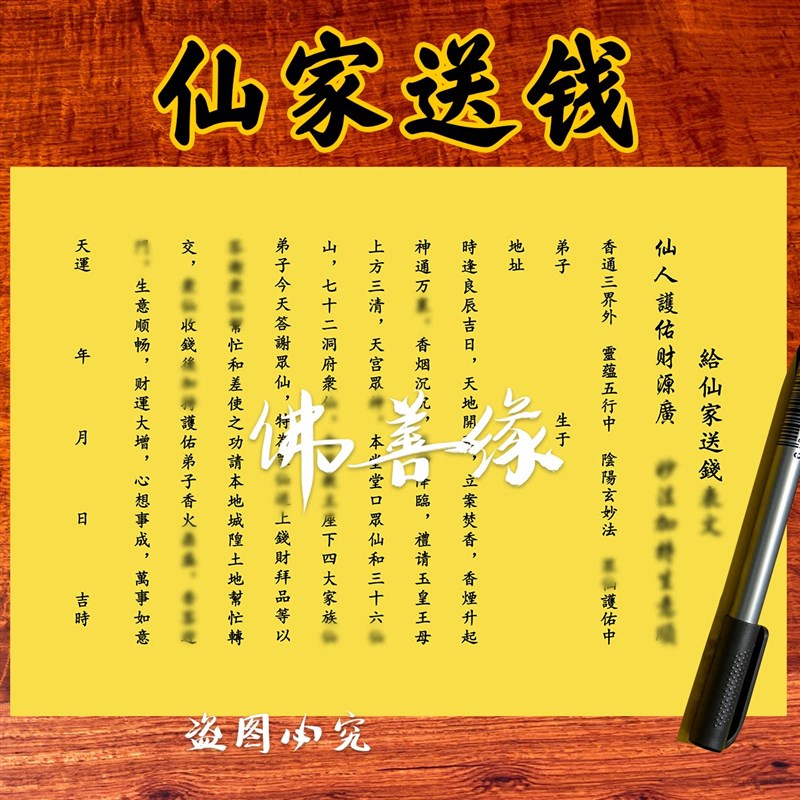 仙家送钱
給仙家送錢
仙人護佑財源廣
香通三界外 靈蘊五行中 陰陽玄妙法 護佑中
弟子 生于
地址
時逢良辰吉日，天地開 立案焚香，香煙升起
神通万 香烟沉 降臨，禮请玉皇王母
上方三清，天宫眾 本坐堂口眾仙和三十六
山，七十二洞府衆 座下四大家族
弟子今天答謝眾仙，特 上錢財拜品等以
幫忙和差使之功請本地城隍土地幫忙轉
交， 收錢 護佑弟子香火
生意顺畅，财運大增，心想事成，萬事如意
天運 年 月 日 吉時
佛善缘
盗图必究